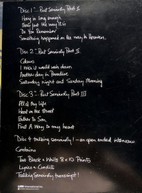 Disc 1 - But Seriously Part I
Hang in long enough
That's just the way it is
Do you Remember
Something happened on the way to heaven.
Disc 2 - But Seriously Part II
Colours
I wish it would rain down
Another day in Paradise
Saturday night and Sunday Morning
Disc 3 - But Seriously Part III
All of my life
Heat on the Street
Father to Son
Find A way to my heart
Disc 4 talking Seriously! - an open ended interview
Contains
Two Black & White 8 x 10 Prints
Lyrics & Credits
Talking Seriously transcript!